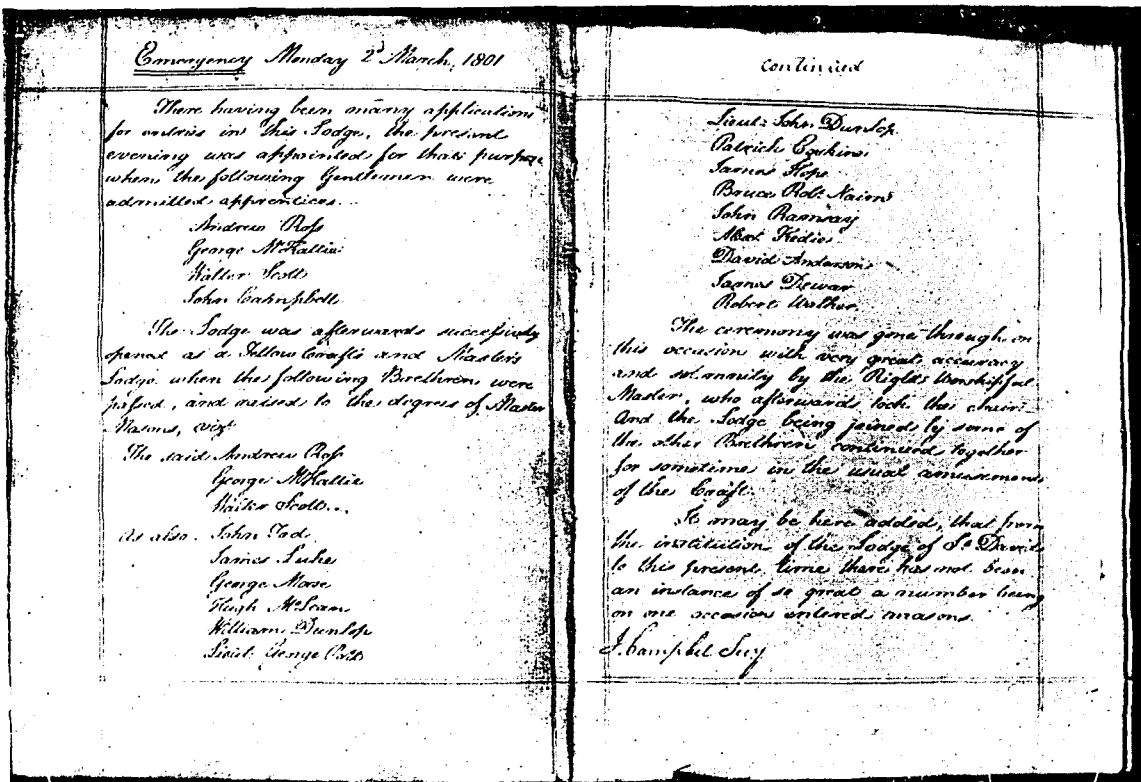 Emergency Monday 2d March, 1801
There having been many applications
for entries in this Lodge, the present
evening was appointed for that purpose
when the following Gentlemen were
admitted apprentices..
Andrew Ross
George McKattie
Walter Scott
John Campbell
The Lodge was afterwards successively
opened as a Fellow Crafts and Masters
Lodge when the following Brethren were
passed, and raised to the degrees of Master
Masons, vizt
The said Andrew Ross
George McKattie
Walter Scott..
As also. John Tod
James Luke
George Morse
Hugh McLean
William Dunlop
Lieut. George
continued
Lieut. John Dunlop
Patrick Erskine
James Hope
Bruce Robt. Nairne
John Ramsay
Alexr. Kedie
David Anderson
James Dewar
Robert Walker.
The ceremony was gone through on
this occasion with very great accuracy
and solemnity by the Right Worshipful
Master, who afterwards took the chair
And the Lodge being joined by some of
the other Brethren continued together
for sometime in the usual amusements
of the Craft.
It may be here added, that from
the institution of the Lodge of St. Davids
to this present time there has not been
an instance of so great a number being
on one occasion entered masons.
J. Campbel Secy